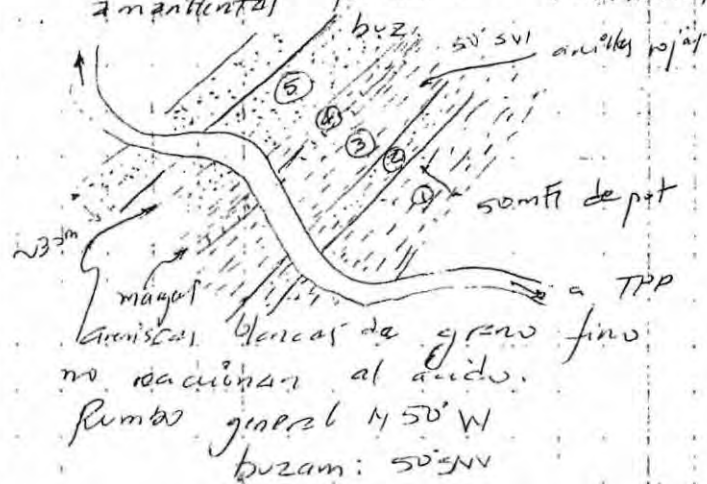 amantental
buz.
50° SW
arcillas rojas
⑤
④
③
②
①
50 mts de pot
~33m
margas
a TPP
areniscas blancas de grano fino
no reaccionan al ácido.
Rumbo general N 50° W
buzam: 50° SW